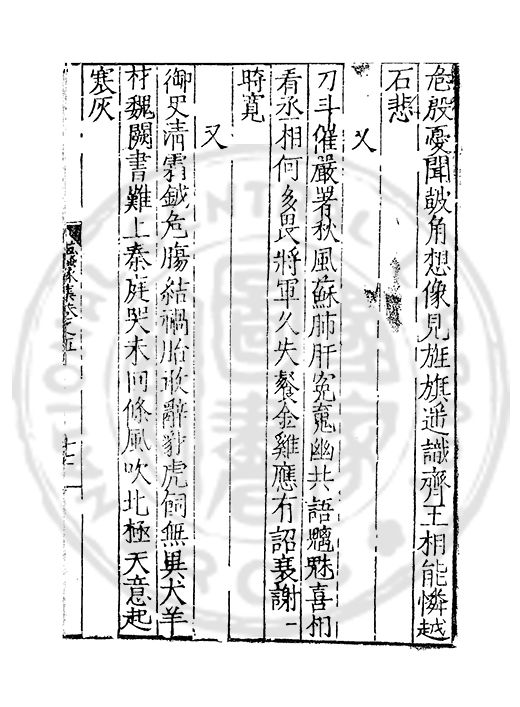 危殷憂聞皷角想像見旌旗遥識齊王相能憐越
石悲
又
刀斗催嚴署秋風蘇肺肝冤䰟幽共語魑魅喜相
看丞相何多畏將軍久失餐金雞應有詔哀謝一
時寛
又
御史清霜鉞危腸結禍胎敢辭豺虎飼無異犬羊
材魏闕書難上秦庭哭未回條風吹北極天意起
寒灰
集卷之五
十二